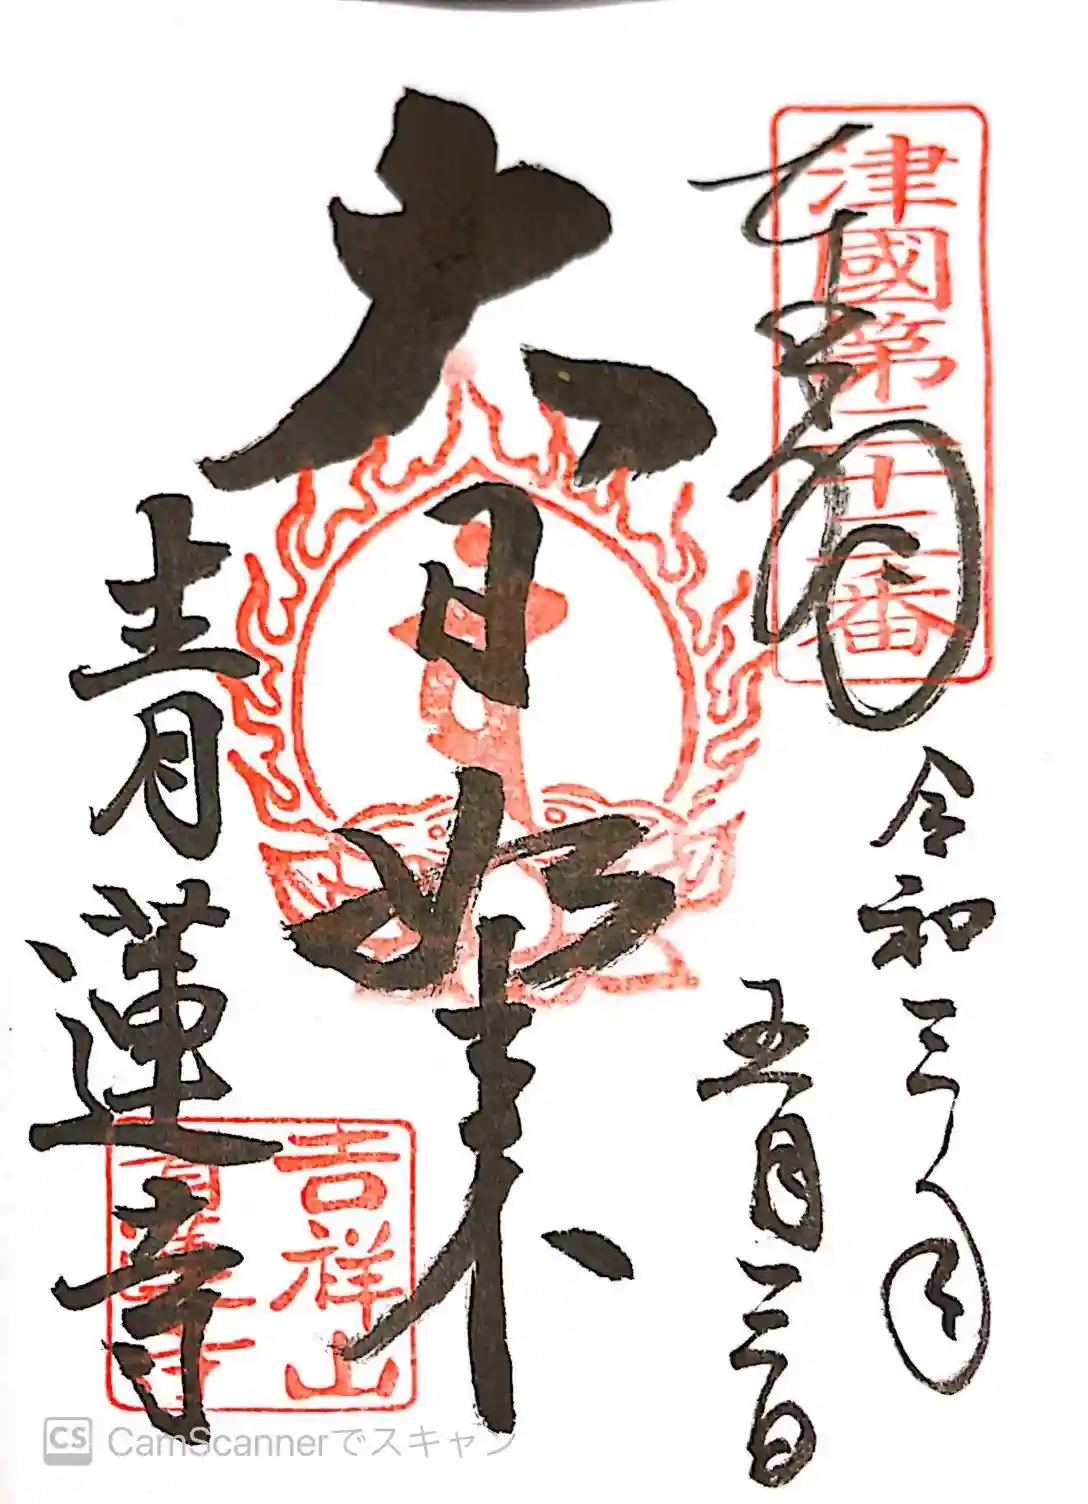 奉拝
津國第二十三番
令和三年
五月三日
大日如来
青蓮寺
吉祥山
青蓮寺
CS CamScannerでスキャン